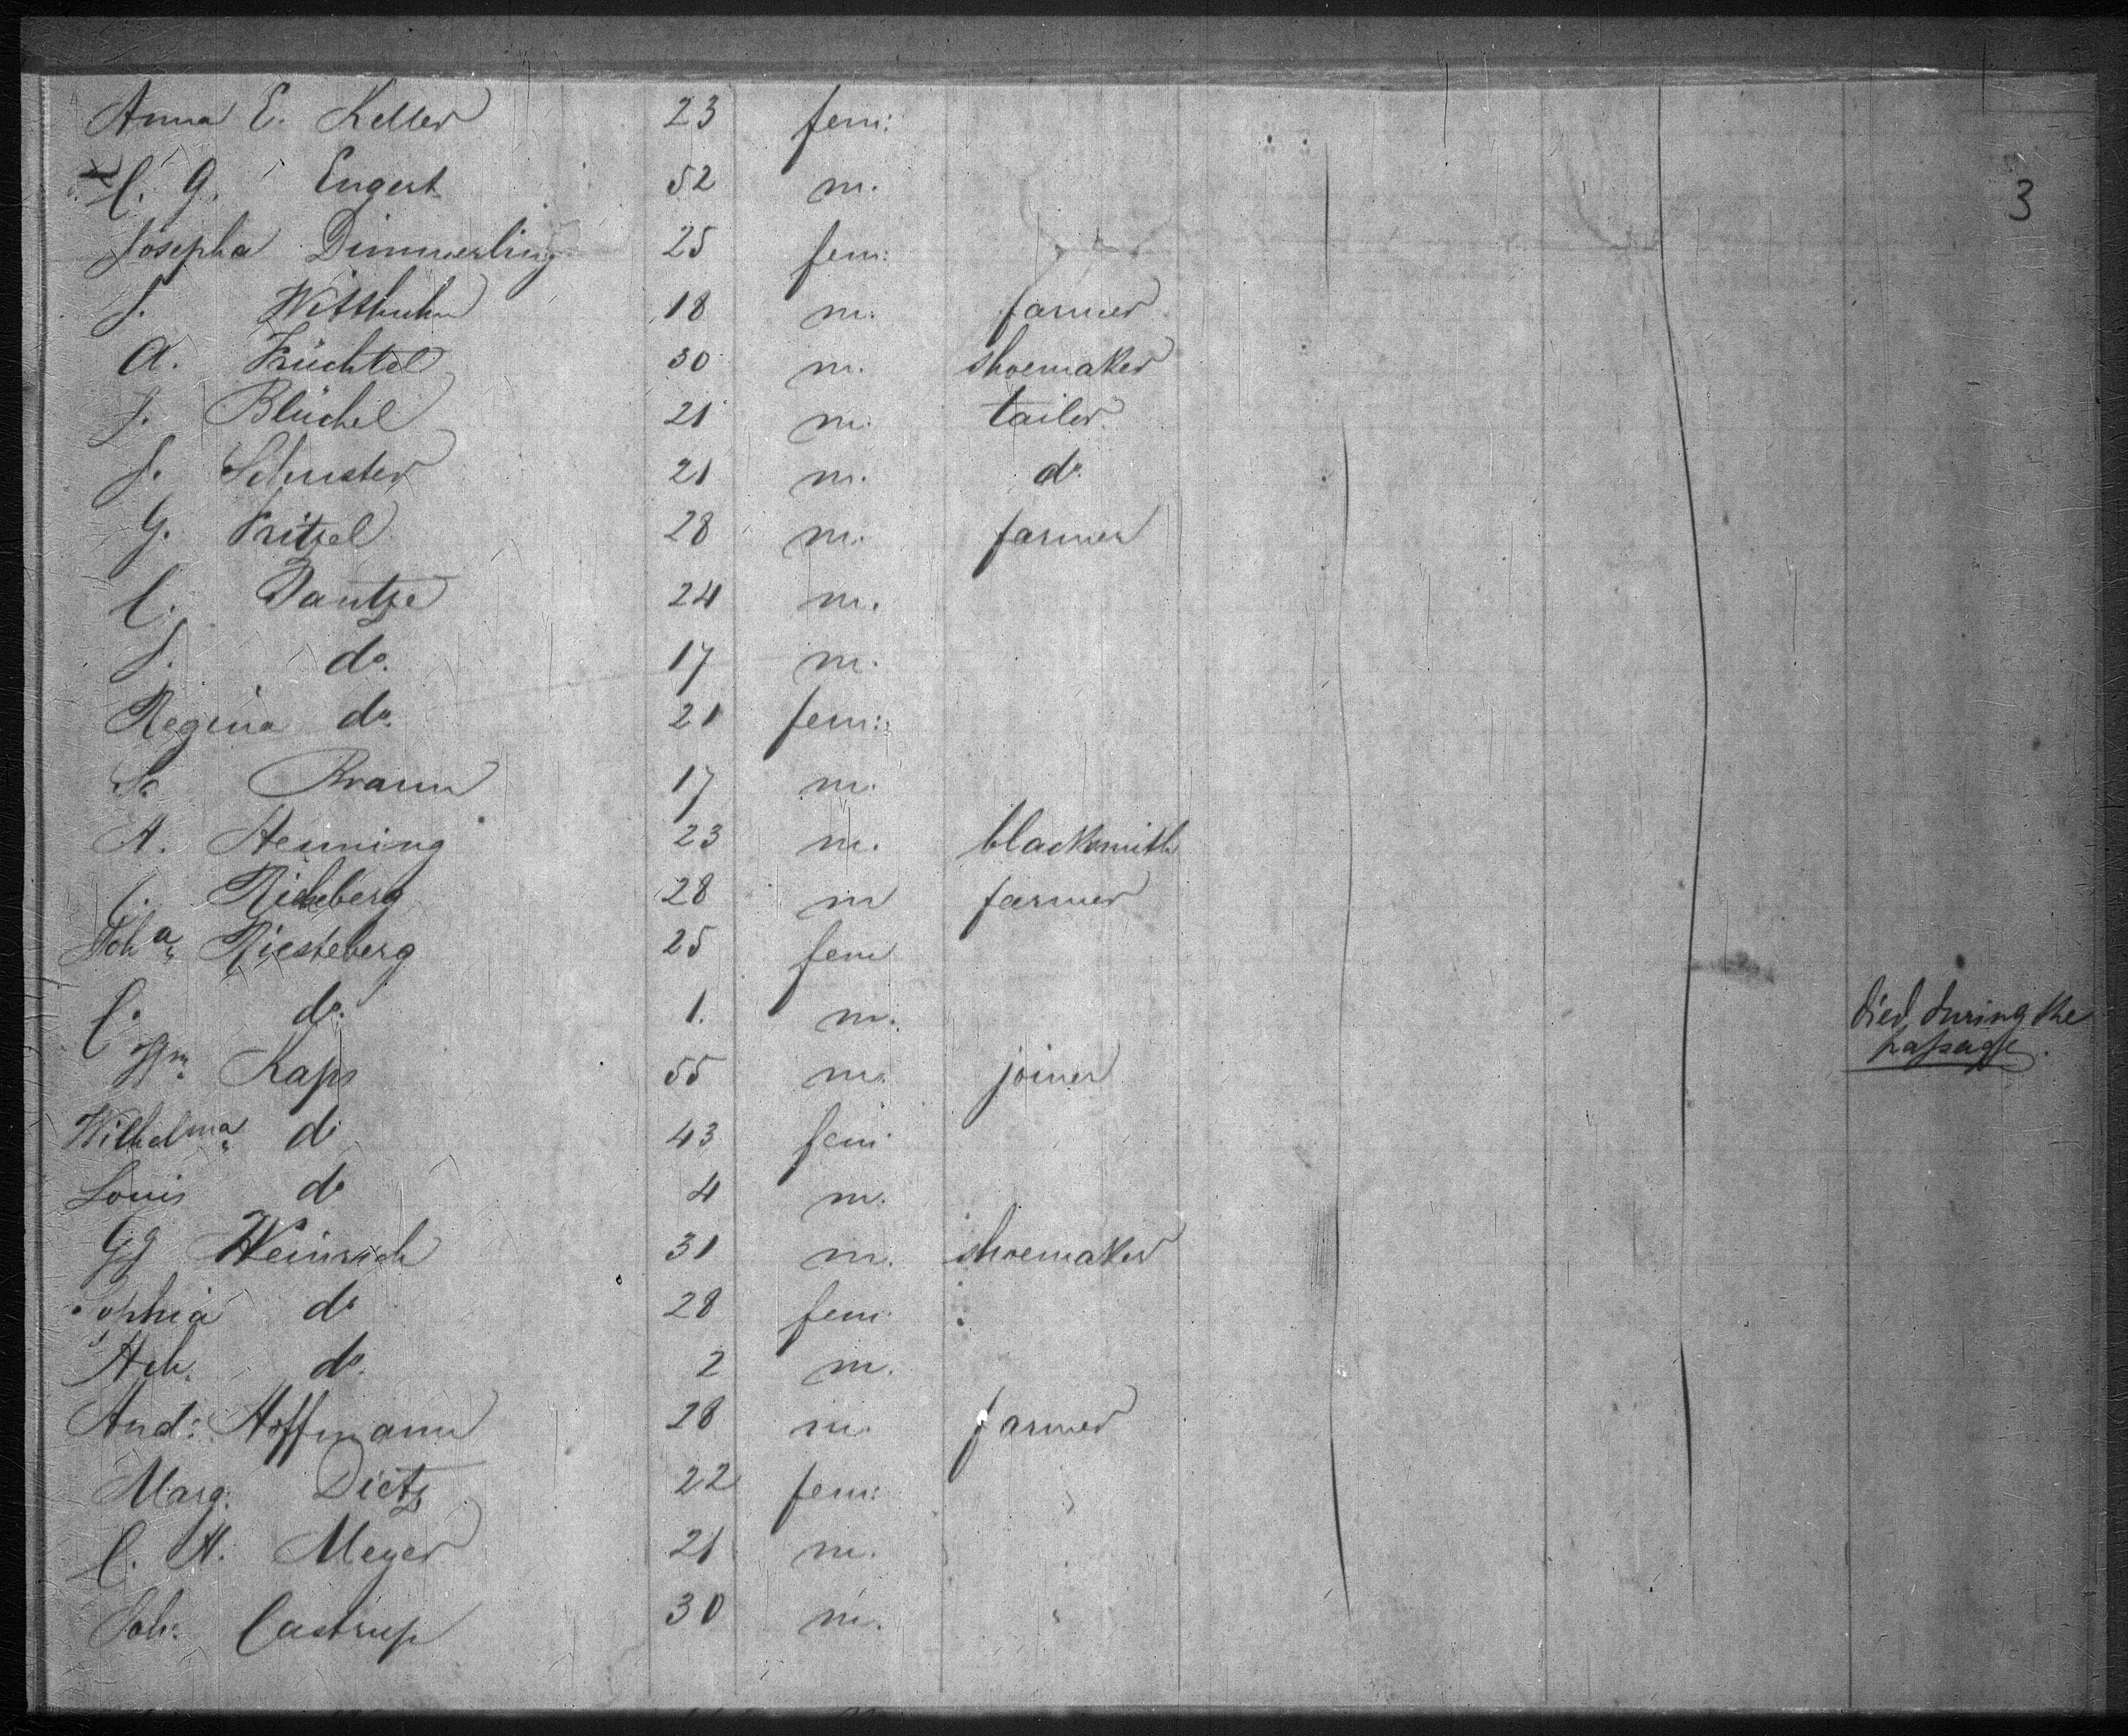 Anna E. Keller 23 fem:
C. G. Engert 52 m.
3
Josepha Dimmerling 25 fem:
J. Witthuhn 18 m. farmer
A. Früchtel 30 m. shoemaker
J. Blüchel 21 m. tailor
J. Schuster 21 m. do.
G. Fritzel 28 m. farmer
C. Dantze 24 m.
J. do. 17 m.
Regina do. 21 fem:
Braun 17 m.
H. Henning 23 m. blacksmith
C. 28 m farmer
Joha. Riesteberg 25 fem
C. do. 1. m. Died during the
passage.
Hm. Kaps 55 m. joiner
Wilhelma. do 43 fem
Louis do 4 m.
Gg Heinrich 31 m. shoemaker
Sophia do 28 fem:
Hch. do. 2 m.
And: Hoffmann 28 m. farmer
Marg. Dietz 22 fem:
C. H. Meyer 21 m.
Joh. Castrup 30 m.